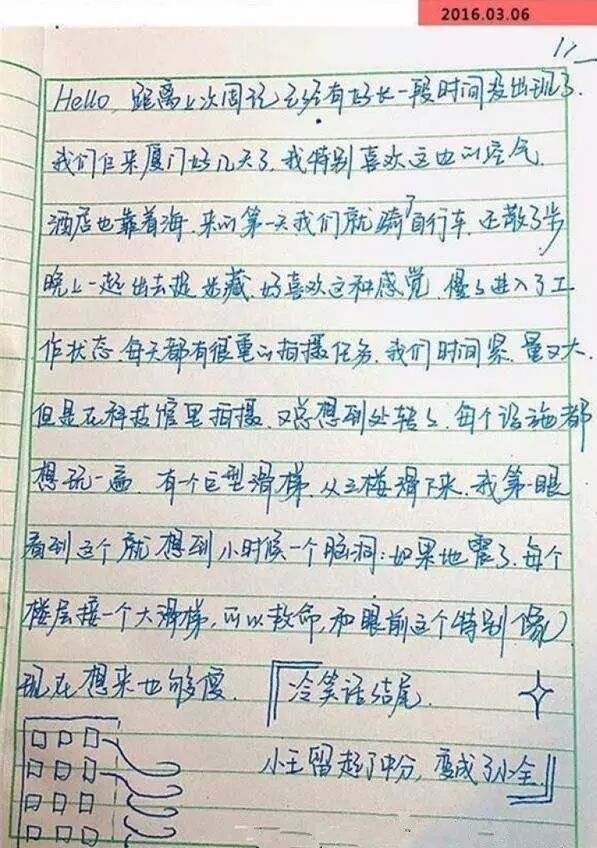 2016.03.06
Hello, 距离上次周记已经有好长一段时间没出现了.
我们在来厦门好几天了, 我特别喜欢这边的空气
酒店也靠着海, 来的第一天我们就骑了自行车, 还散了步
晚上一起出去捉迷藏, 好喜欢这种感觉, 慢慢进入了工
作状态, 每天都有很重的拍摄任务, 我们时间紧, 量又大.
但是在科技馆里拍摄, 又总想到处转转, 每个设施都
想玩一遍, 有个巨型滑梯, 从三楼滑下来, 我第一眼
看到这个就想到小时候一个脑洞: 如果地震了, 每个
楼层接一个大滑梯, 可以救命, 和眼前这个特别像
现在想来也够傻. 『冷笑话结尾
小王留起了中分, 变成了小全』